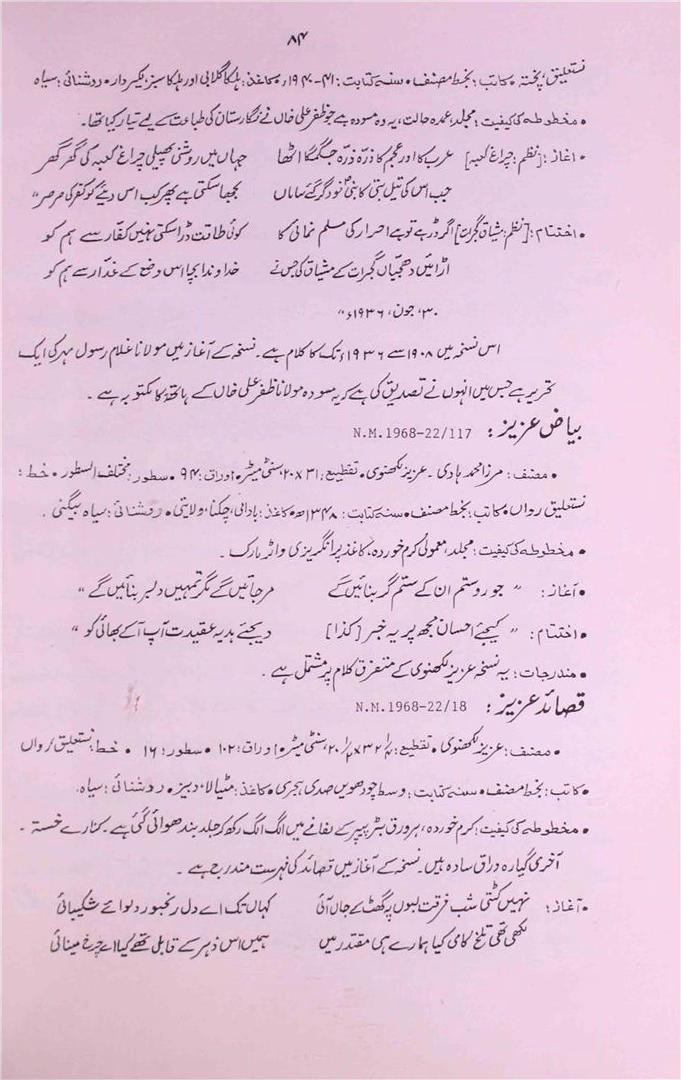 ۸۴
نستعلیق، پختہ • کاتب: بخط مصنف • سنہ کتابت: ۴۱-۱۹۴۰ء • کاغذ: ہلکا گلابی اور ہلکا سبز، لکیردار • روشنائی: سیاہ
• مخطوطہ کی کیفیت: مجلد، عمدہ حالت، یہ وہ مسودہ ہے جو ظفر علی خاں نے نگارستان کی طباعت کے لیے تیار کیا تھا۔
• آغاز: [نظم: چراغ کعبہ] عرب کا اور عجم کا ذرّہ ذرّہ جگمگا اٹھا جہاں میں روشنی پھیلی چراغ کعبہ کی گھر گھر
جب اس کی تیل بتی کا بنی خود گر گئے ساماں بجھا سکتی ہے پھر کب اس دیئے کو کفر کی صرصر"
• اختتام: [نظم: میثاق گجرات] اگر ڈر ہے تو ہے احرار کی مسلم نمائی کا کوئی طاقت ڈرا سکتی نہیں کفّار سے ہم کو
اڑائیں دھجیاں گجرات کے میثاق کی جس نے خداوندا بچا اس وضع کے غدّار سے ہم کو
۳۰، جون، ۱۹۳۶ء"
اس نسخہ میں ۱۹۰۸ سے ۱۹۳۶ء تک کا کلام ہے۔ نسخہ کے آغاز میں مولانا غلام رسول مہر کی ایک
تحریر ہے جس میں انہوں نے تصدیق کی ہے کہ یہ مسودہ مولانا ظفر علی خاں کے ہاتھ کا مکتوبہ ہے۔
بیاض عزیز: N.M.1968-22/117
• مصنف: مرزا محمد ہادی۔ عزیز لکھنوی • تقطیع: ۳۱×۲۰ سنٹی میٹر • اوراق: ۹۴ • سطور: مختلف السطور • خط:
نستعلیق رواں • کاتب: بخط مصنف • سنہ کتابت: ۱۳۴۸ھ • کاغذ: بادامی، چکنا، ولایتی • روشنائی: سیاہ بیگنی۔
• مخطوطہ کی کیفیت: مجلد، معمولی کرم خوردہ، کاغذ پر انگریزی واٹر مارک۔
• آغاز: " جو روستم ان کے ستم گر بنائیں گے مر جائیں گے مگر تمہیں دلبر بنائیں گے"
• اختتام: " کیجئے احسان مجھ پر یہ خبر [کذا] دیجئے ہدیہ عقیدت آپ آکے بھائی کو"
• مندرجات: یہ نسخہ عزیز لکھنوی کے متفرق کلام پر مشتمل ہے۔
قصائد عزیز: N.M.1968-22/18
• مصنف: عزیز لکھنوی • تقطیع: ۳۲×۲۰ سنٹی میٹر • اوراق: ۱۰۲ • سطور: ۱۶ • خط: نستعلیق رواں
• کاتب: بخط مصنف • سنہ کتابت: وسط چودھویں صدی ہجری • کاغذ: مٹیالا، دبیز • روشنائی: سیاہ۔
• مخطوطہ کی کیفیت: کرم خوردہ، ہر ورق بٹر پیپر کے لفافے میں الگ الگ رکھ کر جلد بندھوائی گئی ہے۔ کنارے خستہ۔
آخری گیارہ اوراق سادہ ہیں۔ نسخہ کے آغاز میں قصائد کی فہرست مندرج ہے۔
• آغاز: نہیں کٹتی شب فرقت لبوں پر گھٹ کے جاں آئی کہاں تک اے دل رنجور دعوائے شکیبائی
لکھی تھی تلخ کامی کیا ہمارے ہی مقدر میں ہمیں اس زہر کے قابل تھے کیا اے چرخ مینائی